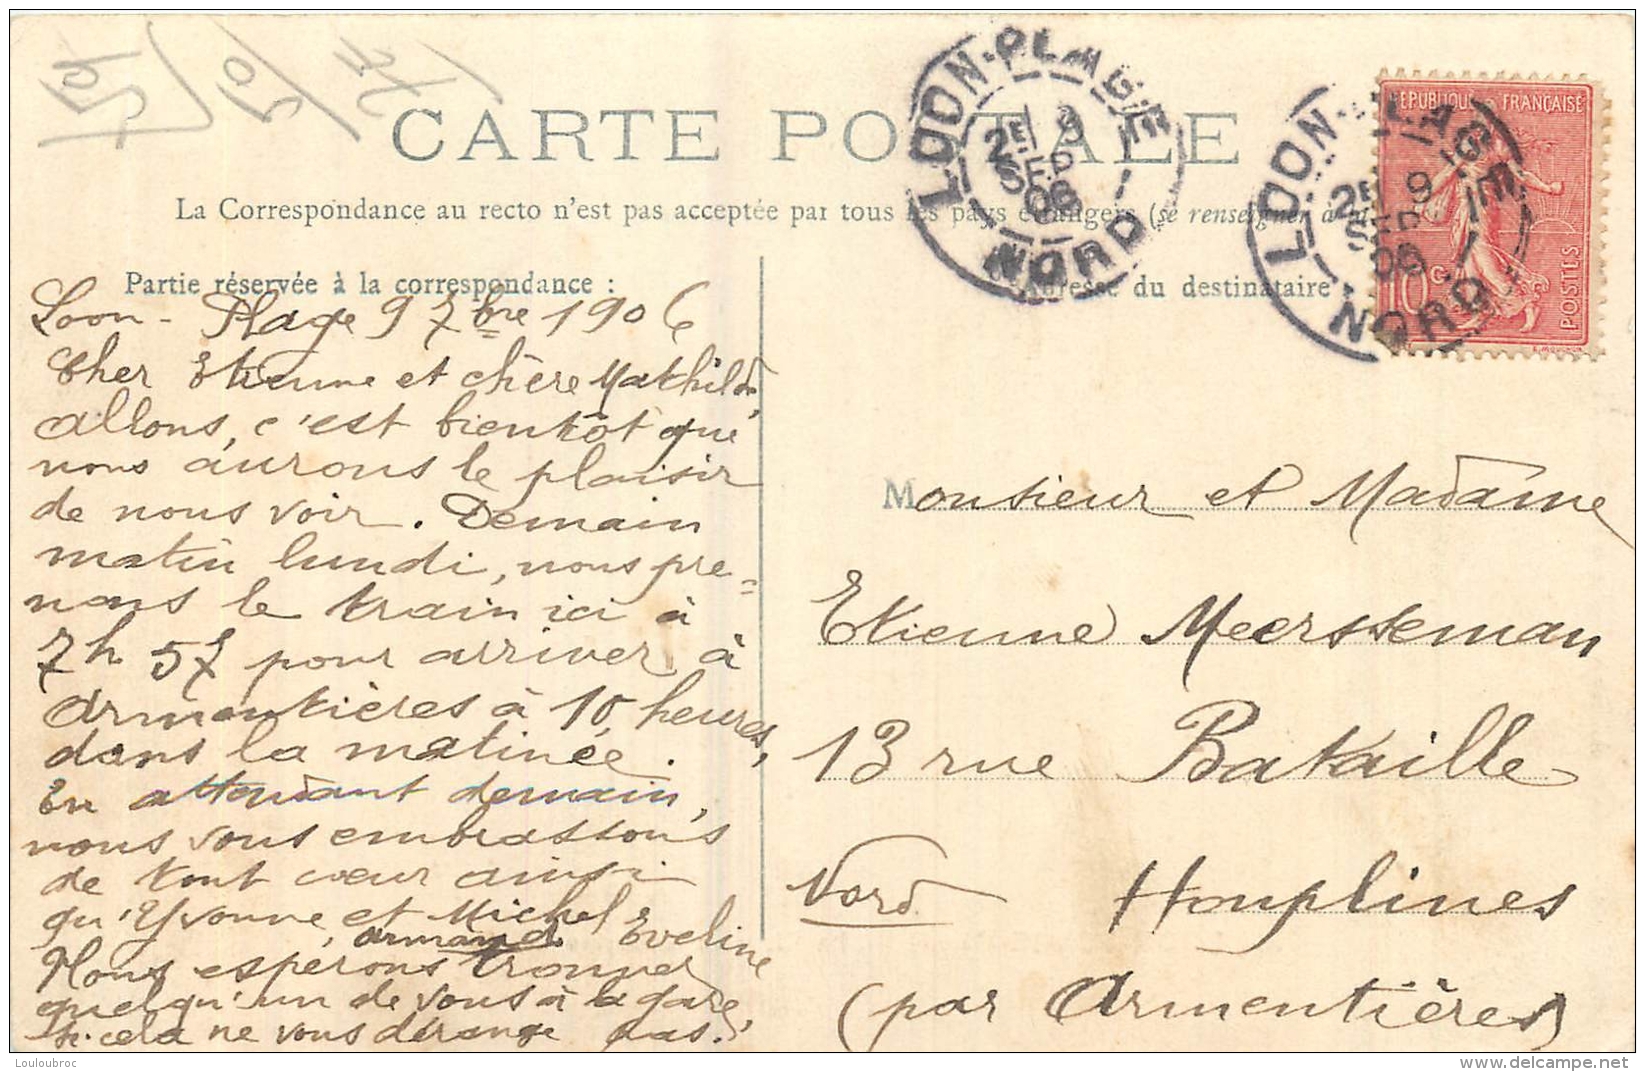 CARTE POSTALE
La Correspondance au recto n'est pas acceptée par tous les pays étrangers (se renseigner à
Partie réservée à la correspondance :
Adresse du destinataire
LOON-PLAGE
2E 9
SEP
06
NORD
LOON-PLAGE
2E 9
SEP
06
NORD
REPUBLIQUE FRANÇAISE
10c
POSTES
Loon-Plage 9 7bre 1906
Cher Etienne et chère Mathilde,
allons, c'est bientôt que
nous aurons le plaisir
de nous voir. Demain
matin lundi, nous pre=
nons le train ici à
7h 57 pour arriver à
Armentières à 10 heures,
dans la matinée.
En attendant demain,
nous vous embrassons
de tout cœur ainsi
qu'Yvonne et Michel
Armand Eveline
Nous espérons trouver
quelqu'un de vous à la gare,
si cela ne vous dérange pas.
Monsieur et Madame
Etienne Meersseman
13 rue Bataille
Nord Houplines
(par Armentières)
Louloubroc
delcampe.net